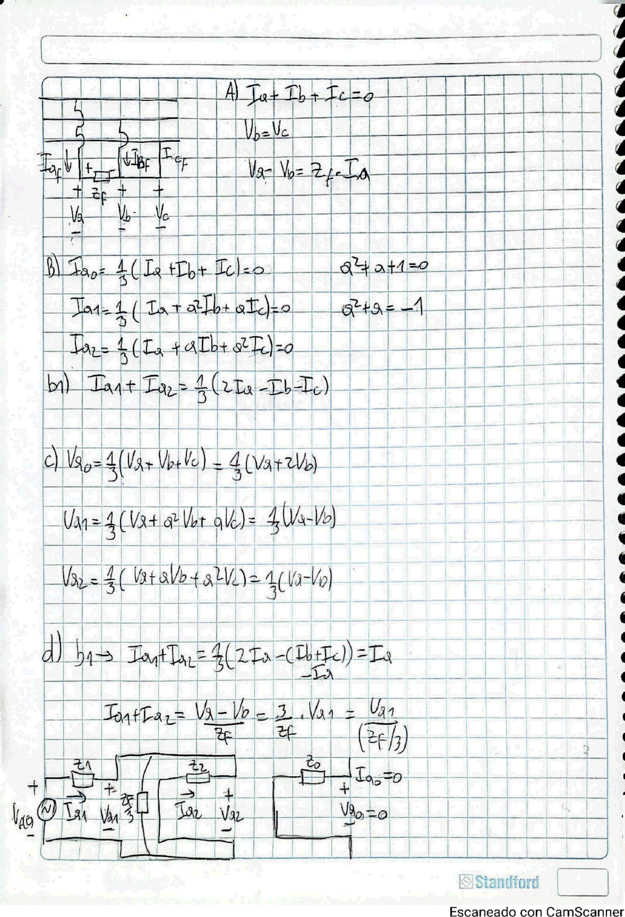 A) Ia + Ib + Ic = 0
Vb = Vc
Va - Vb = Zf · Ia
Iaf ↓ + Zf ↓ IBf Icf
+ + +
Va Vb Vc
- - -
B) Ia0 = 1/3 (Ia + Ib + Ic) = 0 a² + a + 1 = 0
Ia1 = 1/3 (Ia + a²Ib + aIc) = 0 a² + a = -1
Ia2 = 1/3 (Ia + aIb + a²Ic) = 0
b1) Ia1 + Ia2 = 1/3 (2Ia - Ib - Ic)
c) Va0 = 1/3 (Va + Vb + Vc) = 1/3 (Va + 2Vb)
Va1 = 1/3 (Va + a²Vb + aVc) = 1/3 (Va - Vb)
Va2 = 1/3 (Va + aVb + a²Vc) = 1/3 (Va - Vb)
d) b1 → Ia1 + Ia2 = 1/3 (2Ia - (Ib + Ic)) = Ia
-Ia
Ia1 + Ia2 = (Va - Vb)/Zf = 3/Zf · Va1 = Va1/(Zf/3)
Z1 Z2 Z0 Ia0 = 0
+ + + +
Ia1 → Va1 Zf/3 Ia2 → Va2 Va0 = 0
- - - -
Standford
Escaneado con CamScanner